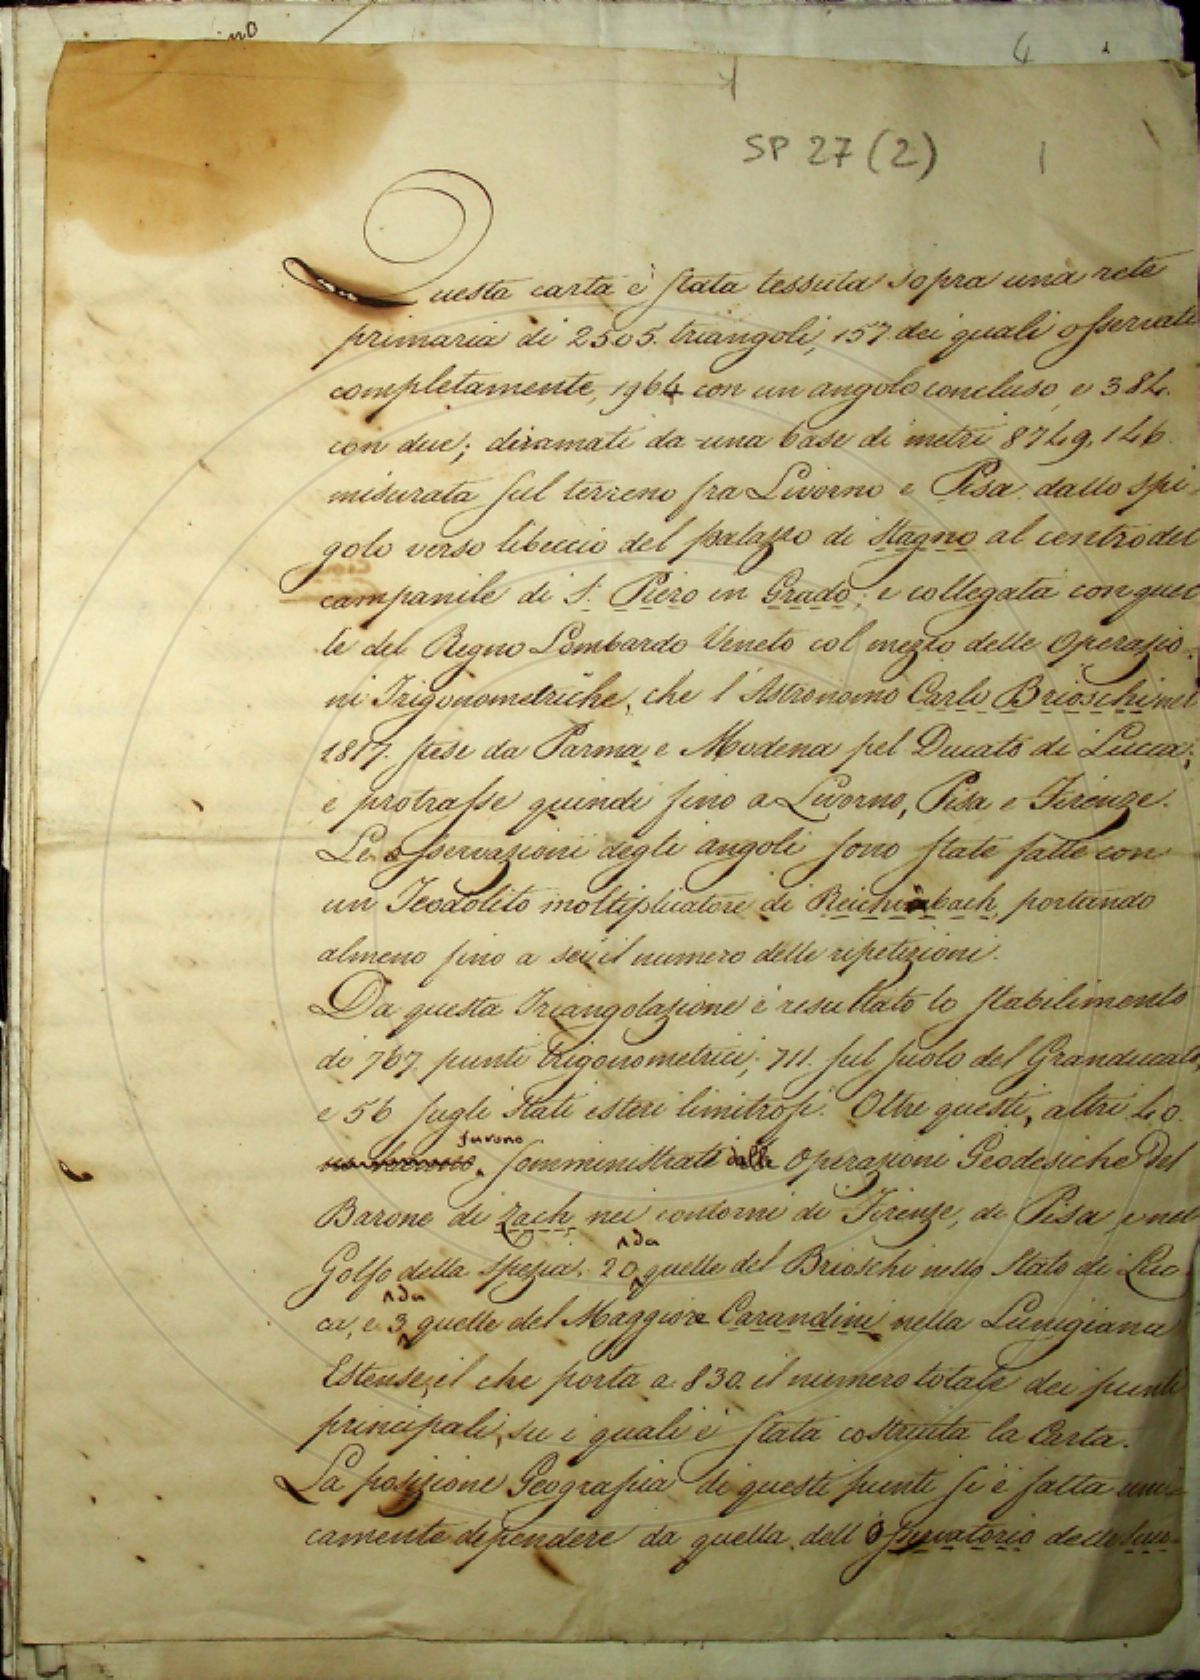 4
SP 27 (2) 1
Questa carta è stata tessuta sopra una rete
primaria di 2505. triangoli, 157. dei quali osservati
completamente, 1964 con un angolo concluso, e 384.
con due; diramati da una base di metri 8749,146
misurata sul terreno fra Livorno e Pisa dallo spi-
golo verso libeccio del palazzo di Stagno al centro del
campanile di S. Piero in Grado; e collegata con quel-
le del Regno Lombardo Veneto col mezzo delle Operazio-
ni Trigonometriche, che l'Astronomo Carlo Brioschi nel
1817. stese da Parma, e Modena pel Ducato di Lucca;
e protrasse quindi fino a Livorno, Pisa e Firenze.
Le osservazioni degli angoli sono state fatte con
un Teodolito moltiplicatore di Reichenbach, portando
almeno fino a sei il numero delle ripetizioni.
Da questa Triangolazione è resultato lo stabilimento
di 767. punti trigonometrici; 711. sul suolo del Granducato,
e 56 sugli Stati esteri limitrofi. Oltre questi, altri 40.
furono
somministrati dalle Operazioni Geodesiche Del
Barone di Zach nei contorni di Firenze, di Pisa, e nel
Golfo della Spezia. 20 da quelle del Brioschi nello Stato di Luc-
ca, e 3 da quelle del Maggiore Carandini nella Lunigiana
Estense; il che porta a 830. il numero totale dei punti
principali, su i quali è stata costruita la Carta.
La posizione Geografia di questi punti si è fatta uni-
camente dipendere da quella dell'Osservatorio delle Scuo-